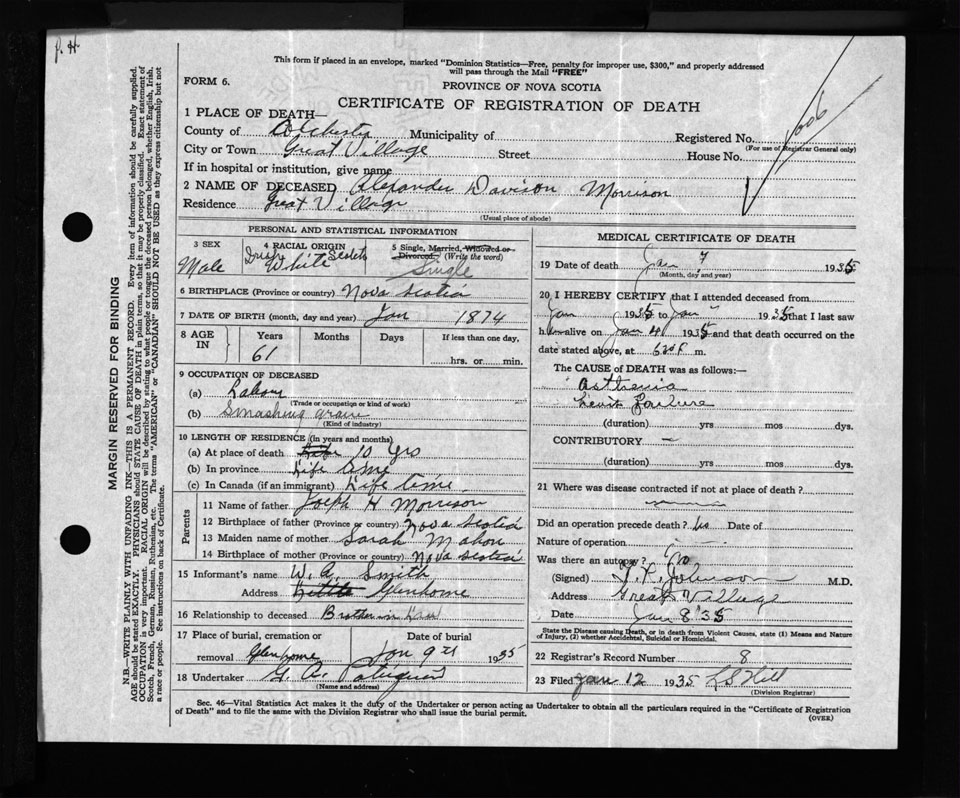 P. H.
This form if placed in an envelope, marked "Dominion Statistics—Free, penalty for improper use, $300," and properly addressed
will pass through the Mail "FREE"
FORM 6.
PROVINCE OF NOVA SCOTIA
CERTIFICATE OF REGISTRATION OF DEATH
1 PLACE OF DEATH—
County of Colchester Municipality of Registered No.
(For use of Registrar General only)
City or Town Great Village Street House No.
If in hospital or institution, give name
2 NAME OF DECEASED Alexander Davison Morrison
Residence Great Village
(Usual place of abode)
PERSONAL AND STATISTICAL INFORMATION
3 SEX
Male
4 RACIAL ORIGIN
Irish Scotch
White
5 Single, Married, Widowed or
Divorced. (Write the word)
Single
6 BIRTHPLACE (Province or country) Nova Scotia
7 DATE OF BIRTH (month, day and year) Jan 1874
8 AGE IN Years Months Days If less than one day,
61 hrs. or min.
9 OCCUPATION OF DECEASED
(a) Labour
(Trade or occupation or kind of work)
(b)
(Kind of industry)
10 LENGTH OF RESIDENCE (in years and months)
(a) At place of death 10 Yrs
(b) In province Life time
(c) In Canada (if an immigrant) Life time.
Parents
11 Name of father Joseph H Morrison
12 Birthplace of father (Province or country) Nova Scotia
13 Maiden name of mother Sarah Mahon
14 Birthplace of mother (Province or country) Nova Scotia
15 Informant's name W. A. Smith
Address Glenholme
16 Relationship to deceased Brother in Law
17 Place of burial, cremation or Date of burial
removal Glenholme Jan 9th 1935
18 Undertaker G. A.
(Name and address)
MEDICAL CERTIFICATE OF DEATH
19 Date of death Jan 7 1935
(Month, day and year)
20 I HEREBY CERTIFY that I attended deceased from
Jan 1935 to Jan 7 1935 that I last saw
him alive on Jan 4 1935 and that death occurred on the
date stated above, at m.
The CAUSE OF DEATH was as follows:
Asthenia
Heart Failure
(duration) yrs mos dys.
CONTRIBUTORY —
(duration) yrs. mos dys.
21 Where was disease contracted if not at place of death?
Did an operation precede death? No Date of
Nature of operation
Was there an autopsy? No
(Signed) Johnson M.D.
Address Great Village
Date Jan 8 '35
State the Disease causing Death, or in death from Violent Causes, state (1) Means and Nature
of Injury, (2) whether Accidental, Suicidal or Homicidal.
22 Registrar's Record Number 8
23 Filed Jan 12 1935 L S Hill
(Division Registrar)
Sec. 46—Vital Statistics Act makes it the duty of the Undertaker or person acting as Undertaker to obtain all the particulars required in the "Certificate of Registration
of Death" and to file the same with the Division Registrar who shall issue the burial permit. (OVER)
MARGIN RESERVED FOR BINDING
N.B.—WRITE PLAINLY WITH UNFADING INK—THIS IS A PERMANENT RECORD. Every item of information should be carefully supplied.
AGE should be stated EXACTLY. PHYSICIANS should STATE CAUSE OF DEATH in plain terms, so that it may be properly classified. Exact statement of
OCCUPATION is very important. RACIAL ORIGIN will be described by stating to what people or tongue the deceased person belonged, whether English, Irish,
Scotch, French, German, Russian, Ruthenian, etc. The terms "AMERICAN" or "CANADIAN" SHOULD NOT BE USED as they express citizenship but not
a race or people. See instructions on back of Certificate.